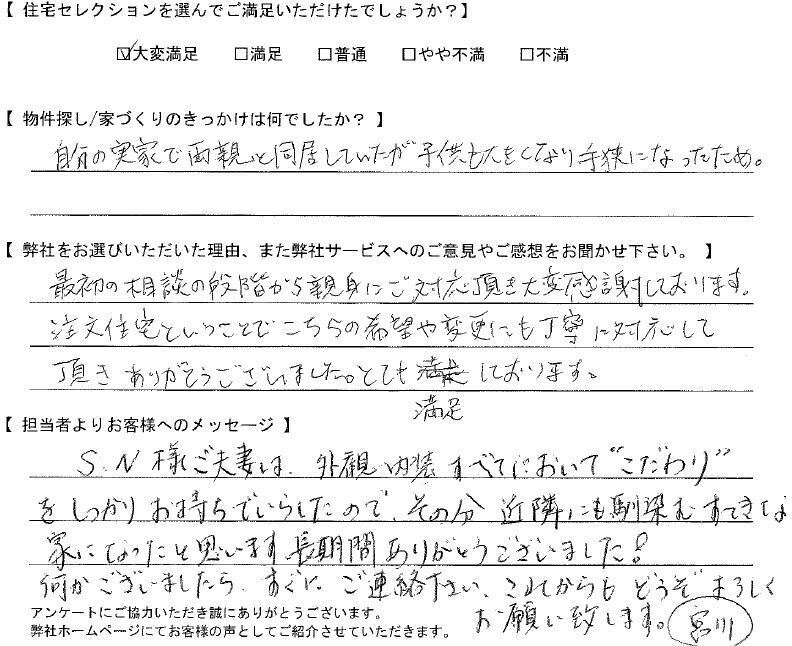 【 住宅セレクションを選んでご満足いただけたでしょうか？】
☑大変満足 □満足 □普通 □やや不満 □不満
【 物件探し/家づくりのきっかけは何でしたか？ 】
自分の実家で両親と同居していたが子供も大きくなり手狭になったため。
【 弊社をお選びいただいた理由、また弊社サービスへのご意見やご感想をお聞かせ下さい。 】
最初の相談の段階から親身にご対応頂き大変感謝しております。
注文住宅ということでこちらの希望や変更にも丁寧に対応して
頂きありがとうございました。とても満足しております。
満足
【 担当者よりお客様へのメッセージ 】
S.N様ご夫妻は、外観、内装すべてにおいて"こだわり"
をしっかりお持ちでいらしたので、その分近隣にも馴染むすてきな
家になったと思います。長期間ありがとうございました！
何かございましたら、すぐにご連絡下さい、これからもどうぞよろしく
お願い致します。宮川
アンケートにご協力いただき誠にありがとうございます。
弊社ホームページにてお客様の声としてご紹介させていただきます。